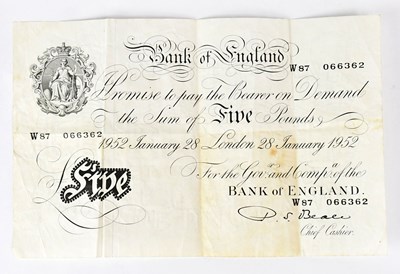 Bank of England
W 87 066362
I Promise to pay the Bearer on Demand
the Sum of Five Pounds
W 87 066362
1952 January 28 London 28 January 1952
For the Govr and Compa of the
BANK OF ENGLAND.
Five
W 87 066362
P. S. Beale
Chief Cashier.